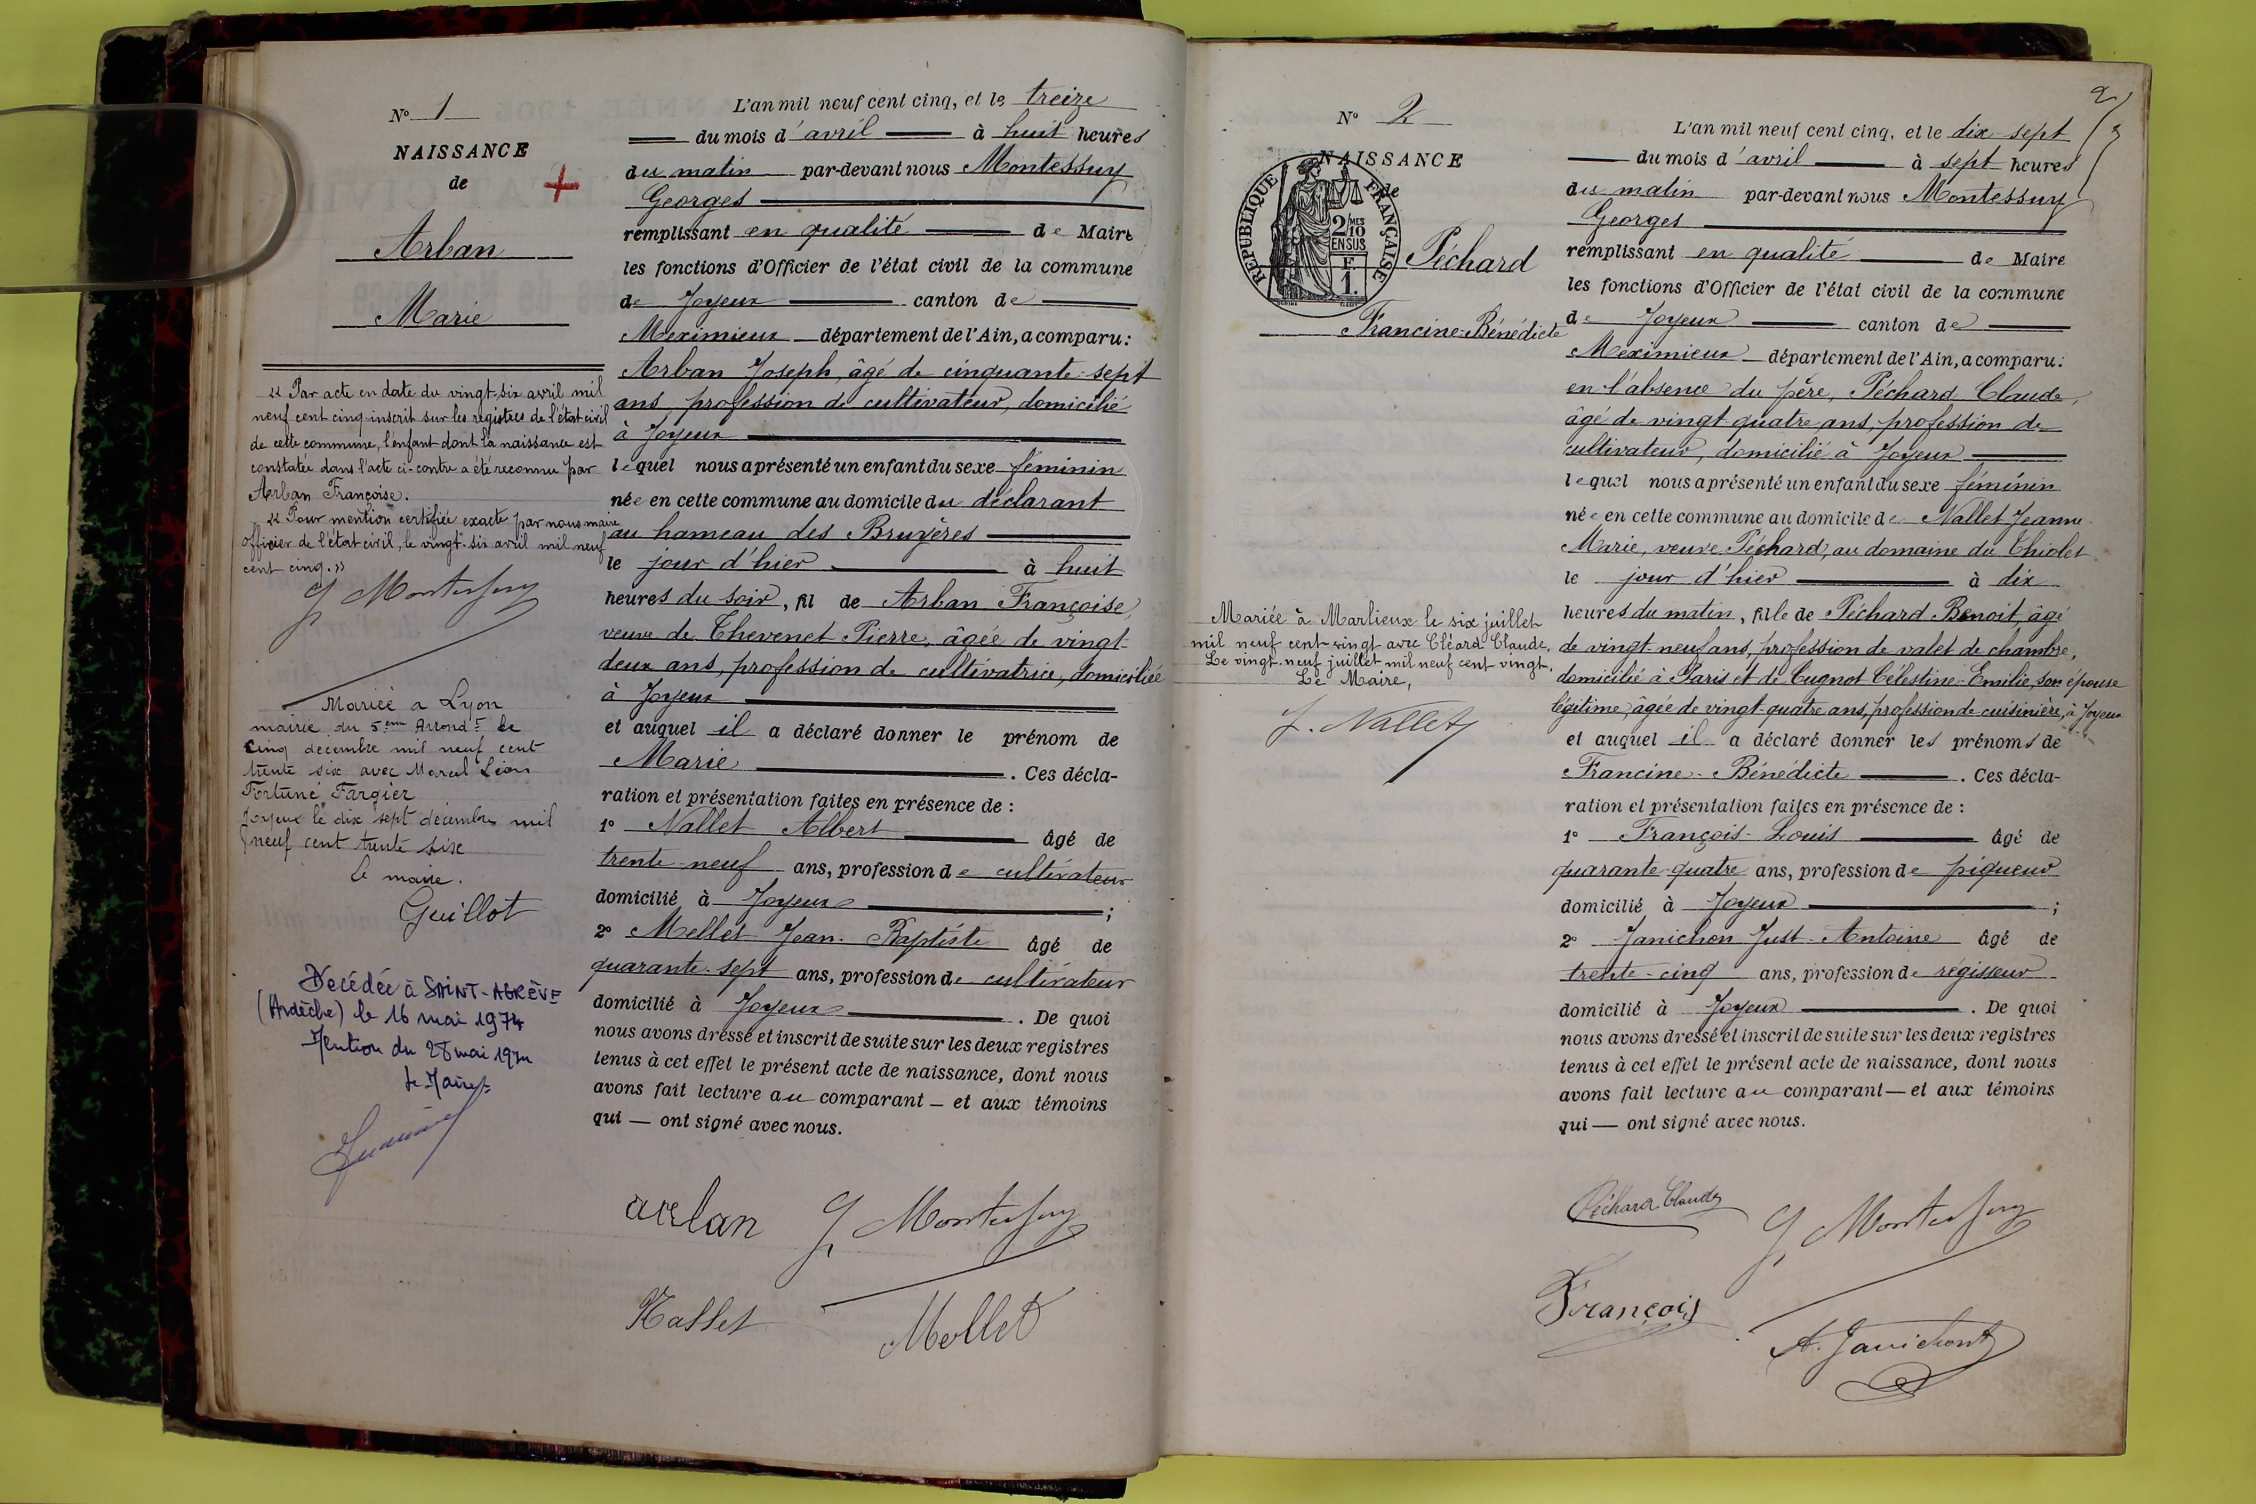 N° 1
NAISSANCE
de
Arban
Marie
« Par acte en date du vingt-six avril mil
neuf cent cinq inscrit sur les registres de l'état civil
de cette commune, l'enfant dont la naissance est
constatée dans l'acte ci-contre a été reconnu par
Arban Françoise.
« Pour mention certifiée exacte par nous maire
officier de l'état civil, le vingt-six avril mil neuf
cent cinq. »
G Montessuy
Mariée a Lyon
mairie du 5ème Arrondt le
cinq décembre mil neuf cent
trente six avec Marcel Léon
Fortuné Fargier
Joyeux le dix sept décembre mil
neuf cent trente six
Le maire.
Guillot
Décédée à SAINT-AGRÈVE
(Ardèche) le 16 mai 1974
Mention du 28 mai 1974
Le Maire
L'an mil neuf cent cinq, et le treize
du mois d'avril à huit heures
du matin par-devant nous Montessuy
Georges
remplissant en qualité de Maire
les fonctions d'Officier de l'état civil de la commune
de Joyeux canton de
Meximieux département de l'Ain, a comparu:
Arban Joseph, âgé de cinquante-sept
ans, profession de cultivateur, domicilié
à Joyeux
lequel nous a présenté un enfant du sexe féminin
née en cette commune au domicile du déclarant
au hameau des Bruyères
le jour d'hier à huit
heures du soir, fil de Arban Françoise,
veuve de Thevenet Pierre, âgée de vingt-
deux ans, profession de cultivatrice, domiciliée
à Joyeux
et auquel il a déclaré donner le prénom de
Marie. Ces décla-
ration et présentation faites en présence de :
1° Nallet Albert âgé de
trente-neuf ans, profession de cultivateur
domicilié à Joyeux ;
2° Mellet Jean-Baptiste âgé de
quarante-sept ans, profession de cultivateur
domicilié à Joyeux. De quoi
nous avons dressé et inscrit de suite sur les deux registres
tenus à cet effet le présent acte de naissance, dont nous
avons fait lecture au comparant — et aux témoins
qui — ont signé avec nous.
arban G Montessuy
Nallet Mellet
2
N° 2
NAISSANCE
de
RÉPUBLIQUE FRANÇAISE
2/10 MES
EN SUS
F.
1.
Péchard
Francine-Bénédicte
Mariée à Marlieux le six juillet
mil neuf cent vingt avec Cléard Claude.
Le vingt-neuf juillet mil neuf cent vingt.
Le Maire,
J. Nallet
L'an mil neuf cent cinq, et le dix-sept
du mois d'avril à sept heures
du matin par-devant nous Montessuy
Georges
remplissant en qualité de Maire
les fonctions d'Officier de l'état civil de la commune
de Joyeux canton de
Meximieux département de l'Ain, a comparu:
en l'absence du père, Péchard Claude,
âgé de vingt-quatre ans, profession de
cultivateur, domicilié à Joyeux
lequel nous a présenté un enfant du sexe féminin
née en cette commune au domicile de Nallet Jeanne-
Marie, veuve Péchard, au domaine du Thiolet
le jour d'hier à dix
heures du matin, fille de Péchard Benoit, âgé
de vingt-neuf ans, profession de valet de chambre,
domicilié à Paris et de Cugnot Célestine-Emilie, son épouse
légitime, âgée de vingt-quatre ans, profession de cuisinière, à Joyeux
et auquel il a déclaré donner les prénoms de
Francine-Bénédicte. Ces décla-
ration et présentation faites en présence de :
1° François Louis âgé de
quarante-quatre ans, profession de piqueur
domicilié à Joyeux ;
2° Janichon Just-Antoine âgé de
trente-cinq ans, profession de régisseur
domicilié à Joyeux. De quoi
nous avons dressé et inscrit de suite sur les deux registres
tenus à cet effet le présent acte de naissance, dont nous
avons fait lecture au comparant — et aux témoins
qui — ont signé avec nous.
Péchard Claude G Montessuy
François A. Janichon